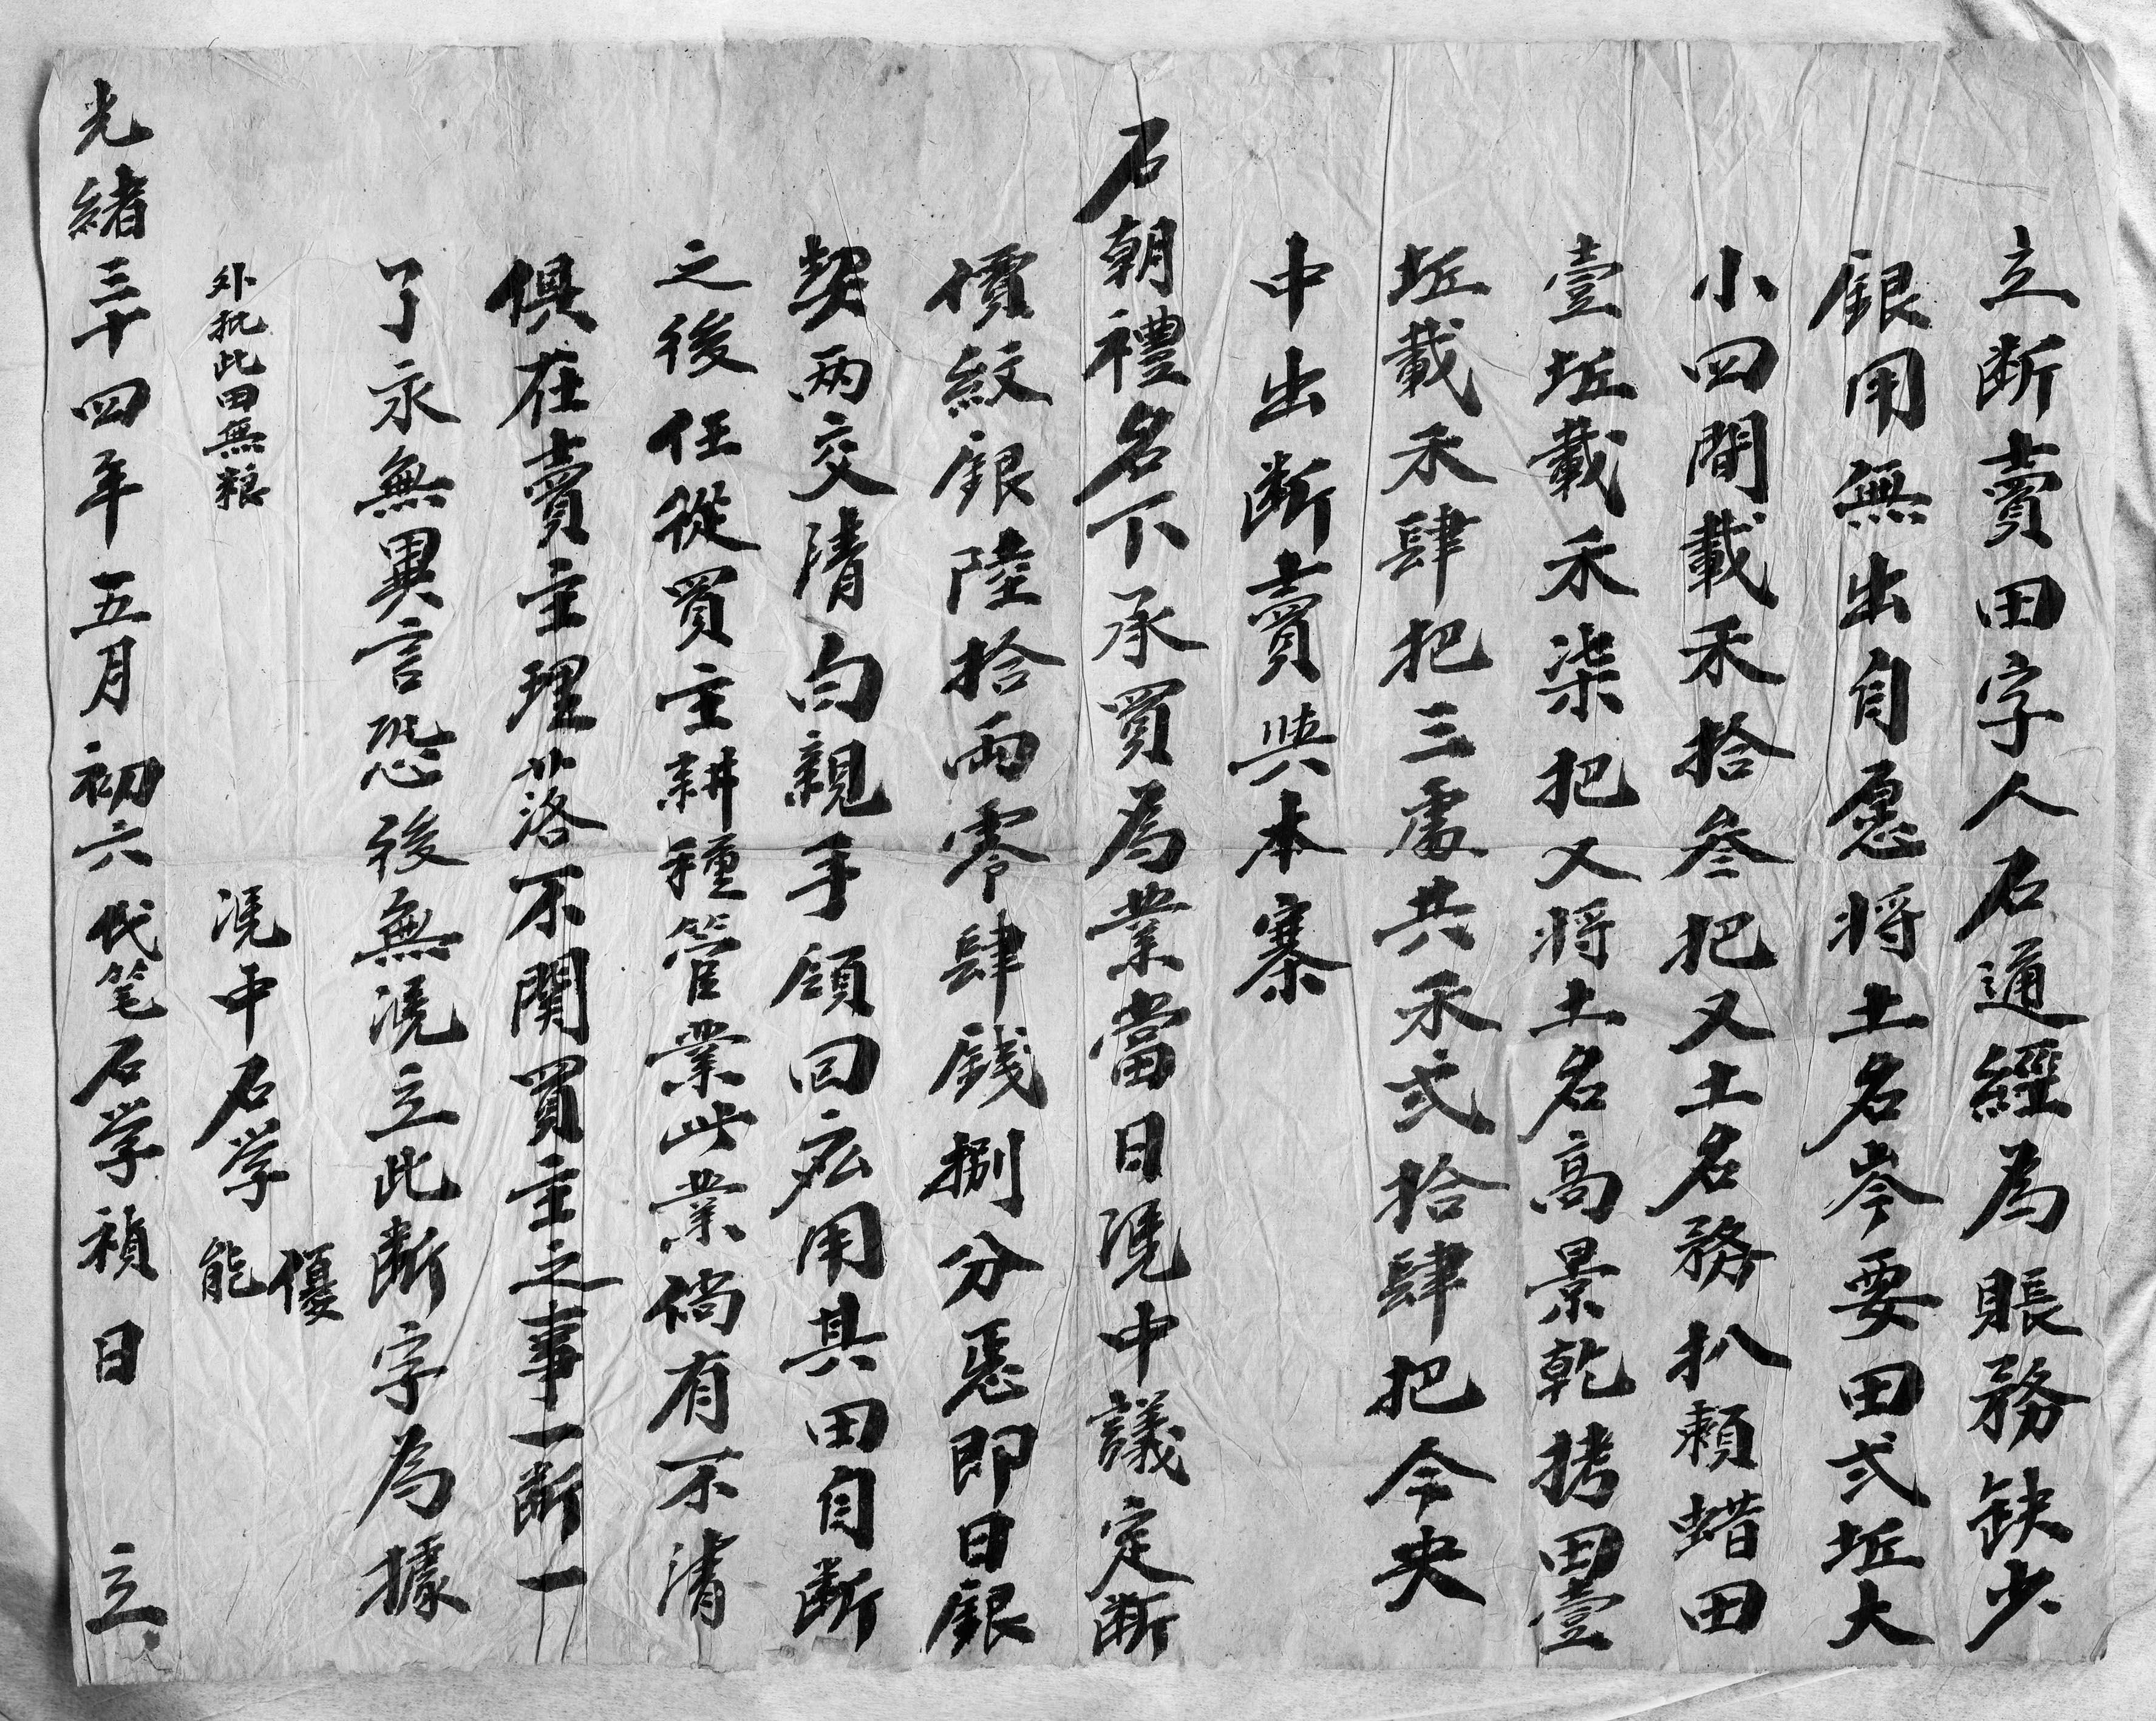 立断賣田字人石通經為賬務缺少
銀用無出自愿将土名岑要田弍坵大
小四間載禾拾叁把又土名務扒頼蜡田
壹坵載禾柒把又将土名高景乾拷田壹
坵載禾肆把三處共禾弍拾肆把今央
中出断賣與本寨
石朝禮名下承買為業當日凴中議定断
價紋銀陸拾兩零肆錢捌分悉即日銀
契兩交清白親手領回応用其田自断
之後任從買主耕種管業此業倘有不清
俱在賣主理落不関買主之事一断一
了永無異言恐後無凴立此断字為據
外批此田無粮
凴中石学優
能
光緒三十四年五月初六代笔石学禎日 立